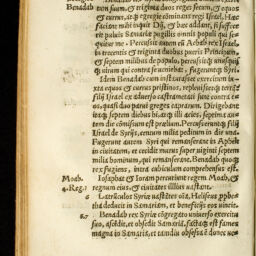 Benadab
suum, & triginta duos reges secum, & equos
& currus, itaq; egregie cominans regi Israel. Hæc
faciant mihi inquit Dij, & hæc addant, si suffece
rit puluis Samariæ pugillis omnis populi qui se
quitur me. Percussit autem eū Achab rex Israel,
in trecentis & triginta duobus pueris Principum,
& septem milibus de populo, percussitq; unusquisq;
uirum qui contra se ueniebat, fugeruntq; Syri.
Idem Benadab cum instaurasset exercitum in
Israel ex aduerso castrametati sunt contra e
os, quasi duo parui greges caprarum. Dirigebant
itaq; septem diebus hi, atq; illi acies, septima au
tem die cōmissum est prælium. Percusseruntq; filij
Israel de Syris, centum milia peditum in die una.
Fugerunt autem Syri qui remanserant in Aphech
in ciuitatem, et cecidit murus super uiginti septem
milia hominum, qui remanserant. Benadab quoq;
rex fugiens, intra cubiculum comprehensus est.
Moab.
4. Reg. 3.
Iosaphat & Ioram percutiunt regem Moab, &
regnum eius, & ciuitates illius uastant.
6
Latrūculos Syriæ uastantes oēs, Heliseus prophe
ta deducit in Samariam, et beneficijs eos uincit.
6. 7
Benadab rex Syriæ cōgregato uniuerso exercitu
suo, ascēdit, et obsedit Samariā, factaq; est fames
magna in Samaria, et tandiu obsessa ē donec ue=